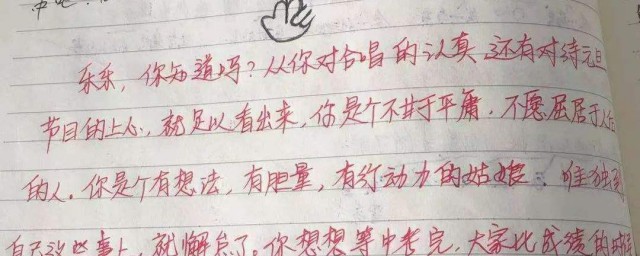 乐乐，你知道吗？从你对合唱的认真 还有对待元旦
节目的上心，就足以看出来，你是个不甘于平庸，不愿屈居于人后
的人。你是个有想法，有胆量，有行动力的姑娘，唯独到
自己这些事上，就懈怠了。你想想等中考完，大家比成绩的时